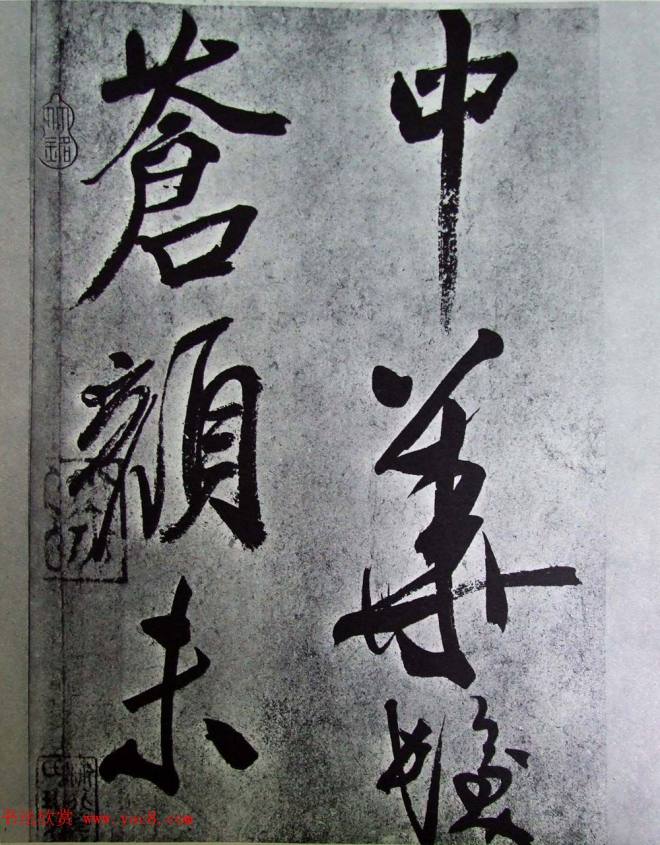 中華
蒼顔未
书法欣赏 www.yac8.com